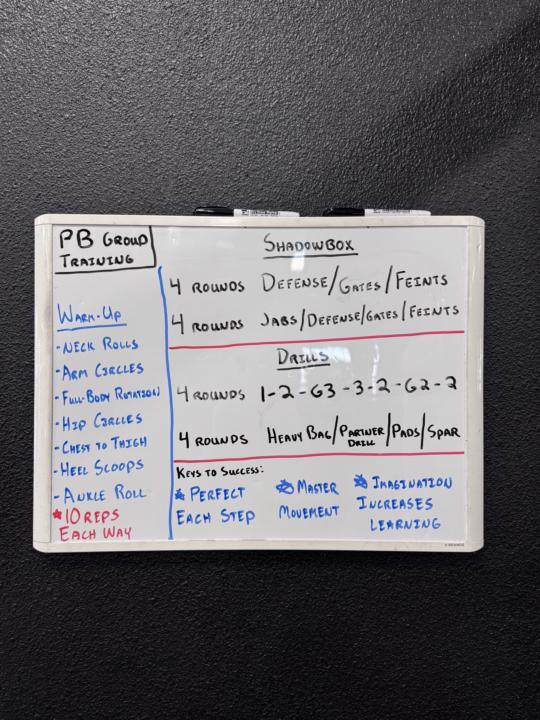 PB GROUP
TRAINING
WARM-UP
-NECK ROLLS
-ARM CIRCLES
-FULL-BODY ROTATION
-HIP CIRCLES
-CHEST TO THIGH
-HEEL SCOOPS
-ANKLE ROLL
*10 REPS
EACH WAY
SHADOWBOX
4 ROUNDS DEFENSE/GATES/FEINTS
4 ROUNDS JABS/DEFENSE/GATES/FEINTS
DRILLS
4 ROUNDS 1-2-G3-3-2-G2-2
4 ROUNDS HEAVY BAG/PARTNER DRILL/PADS/SPAR
KEYS TO SUCCESS:
* PERFECT
EACH STEP
* MASTER
MOVEMENT
* IMAGINATION
INCREASES
LEARNING